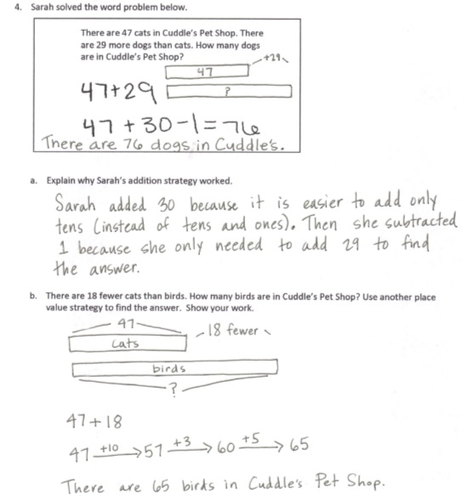 4. Sarah solved the word problem below.
There are 47 cats in Cuddle's Pet Shop. There
are 29 more dogs than cats. How many dogs
are in Cuddle's Pet Shop?
+29
47
47+29
?
47 + 30 - 1 = 76
There are 76 dogs in Cuddle's.
a. Explain why Sarah's addition strategy worked.
Sarah added 30 because it is easier to add only
tens (instead of tens and ones). Then she subtracted
1 because she only needed to add 29 to find
the answer.
b. There are 18 fewer cats than birds. How many birds are in Cuddle's Pet Shop? Use another place
value strategy to find the answer. Show your work.
47
18 fewer
cats
birds
?
47+18
47 +10→ 57 +3→ 60 +5→ 65
There are 65 birds in Cuddle's Pet Shop.